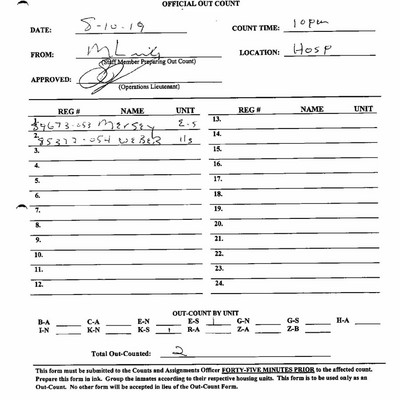 OFFICIAL OUT COUNT
DATE: 8-10-19 COUNT TIME: 10pm
FROM: LOCATION: HOSP
(Staff Member Preparing Out Count)
APPROVED:
(Operations Lieutenant)
REG # NAME UNIT REG # NAME UNIT
1. 84673-053 MERSEY E-S 13.
2. 85377-054 WEBER 14.
3. 15.
4. 16.
5. 17.
6. 18.
7. 19.
8. 20.
9. 21.
10. 22.
11. 23.
12. 24.
OUT-COUNT BY UNIT
B-A C-A E-N E-S 1 G-N G-S H-A
I-N K-N K-S 1 R-A Z-A Z-B
Total Out-Counted: 2
This form must be submitted to the Counts and Assignments Officer FORTY-FIVE MINUTES PRIOR to the affected count.
Prepare this form in ink. Group the inmates according to their respective housing units. This form is to be used only as an
Out-Count. No other form will be accepted in lieu of the Out-Count Form.